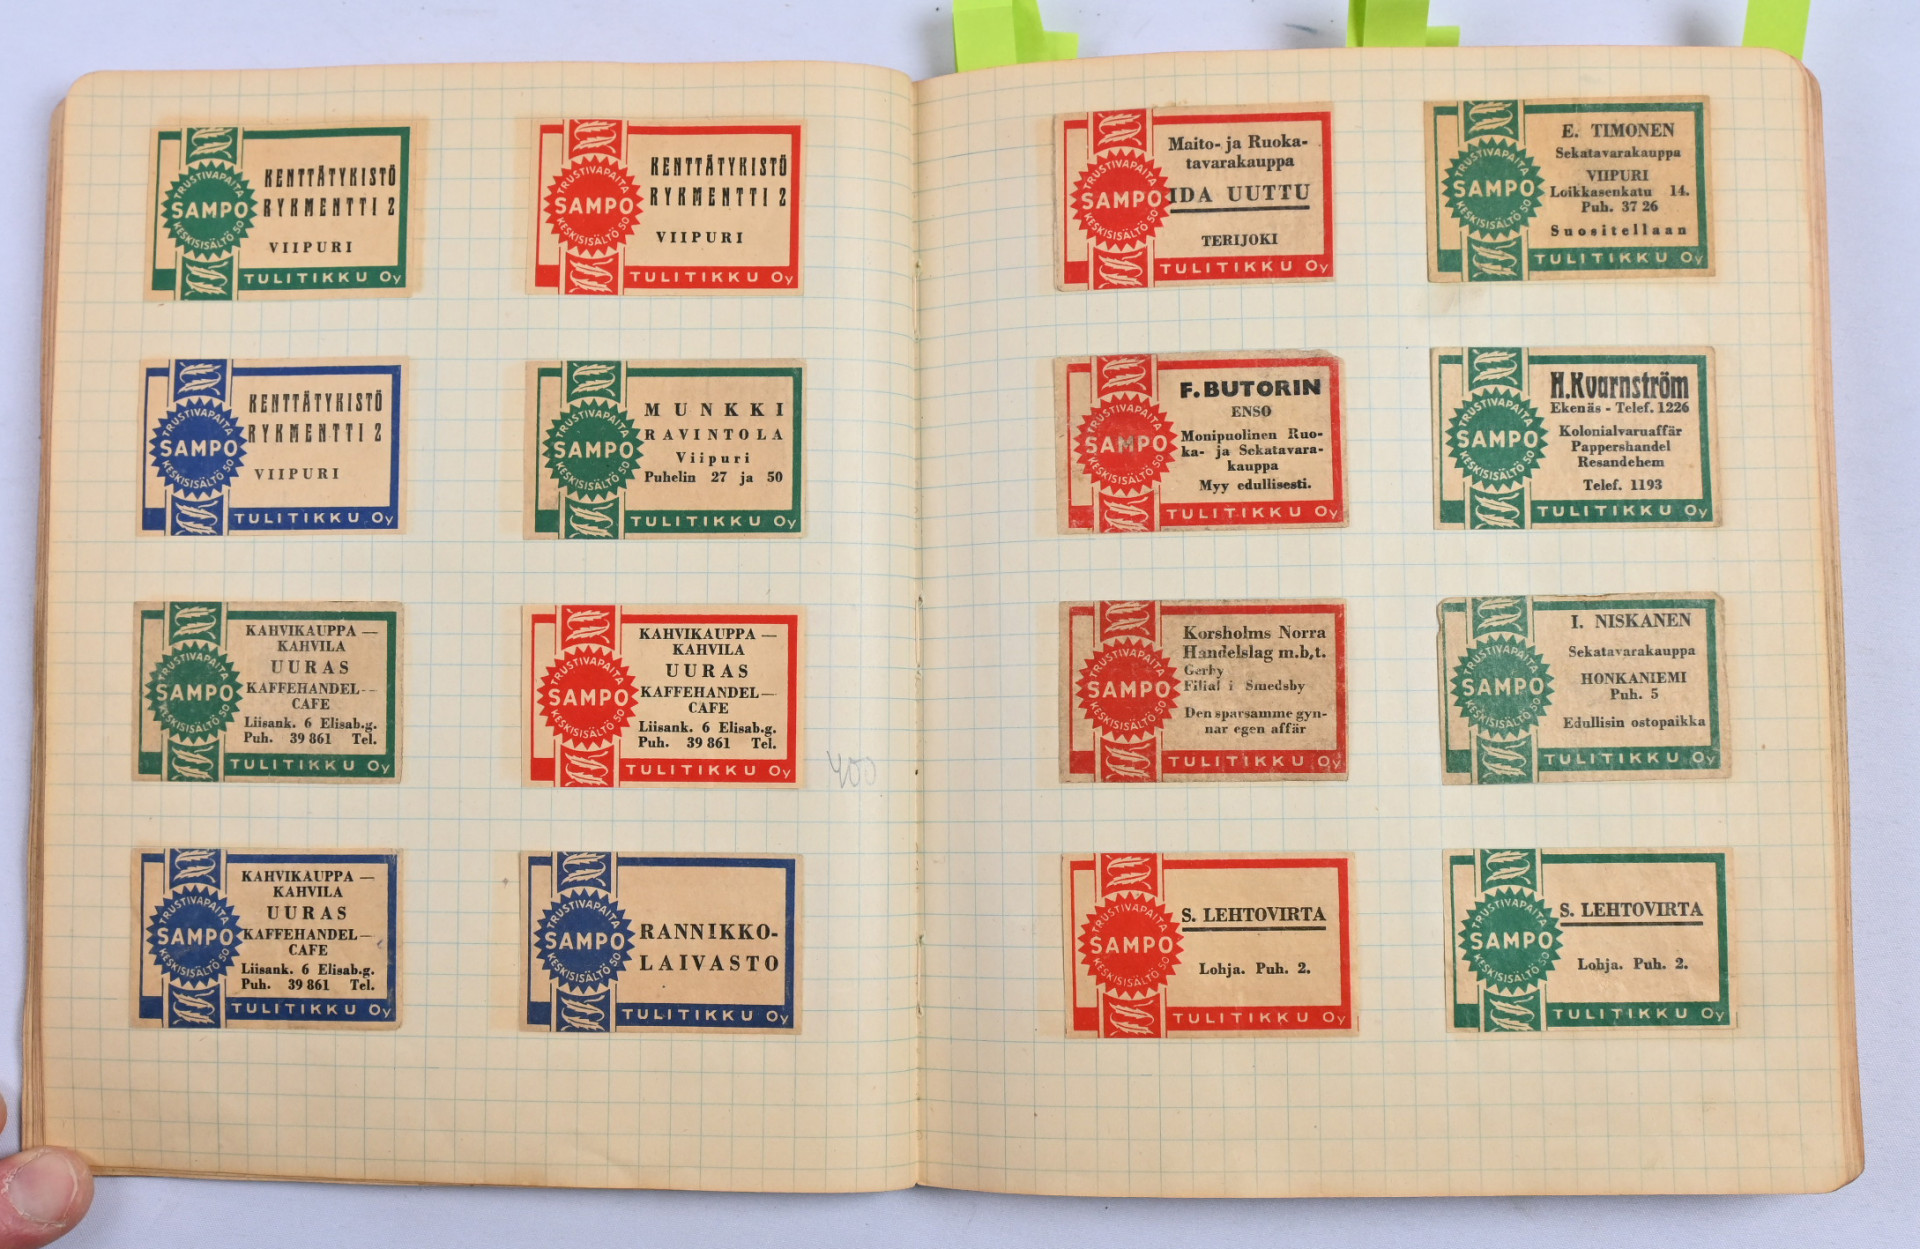 TRUSTIVAPAITA
SAMPO
KESKISISÄLTÖ 50
KENTTÄTYKISTÖ
RYKMENTTI 2
VIIPURI
TULITIKKU Oy
TRUSTIVAPAITA
SAMPO
KESKISISÄLTÖ 50
KENTTÄTYKISTÖ
RYKMENTTI 2
VIIPURI
TULITIKKU Oy
TRUSTIVAPAITA
SAMPO
KESKISISÄLTÖ 50
KENTTÄTYKISTÖ
RYKMENTTI 2
VIIPURI
TULITIKKU Oy
TRUSTIVAPAITA
SAMPO
KESKISISÄLTÖ 50
MUNKKI
RAVINTOLA
Viipuri
Puhelin 27 ja 50
TULITIKKU Oy
TRUSTIVAPAITA
SAMPO
KESKISISÄLTÖ 50
KAHVIKAUPPA —
KAHVILA
UURAS
KAFFEHANDEL—
CAFE
Liisank. 6 Elisab.g.
Puh. 39 861 Tel.
TULITIKKU Oy
TRUSTIVAPAITA
SAMPO
KESKISISÄLTÖ 50
KAHVIKAUPPA —
KAHVILA
UURAS
KAFFEHANDEL—
CAFE
Liisank. 6 Elisab.g.
Puh. 39 861 Tel.
TULITIKKU Oy
400
TRUSTIVAPAITA
SAMPO
KESKISISÄLTÖ 50
KAHVIKAUPPA —
KAHVILA
UURAS
KAFFEHANDEL—
CAFE
Liisank. 6 Elisab.g.
Puh. 39 861 Tel.
TULITIKKU Oy
TRUSTIVAPAITA
SAMPO
KESKISISÄLTÖ 50
RANNIKKO-
LAIVASTO
TULITIKKU Oy
TRUSTIVAPAITA
SAMPO
KESKISISÄLTÖ 50
Maito- ja Ruoka-
tavarakauppa
IDA UUTTU
TERIJOKI
TULITIKKU Oy
TRUSTIVAPAITA
SAMPO
KESKISISÄLTÖ 50
E. TIMONEN
Sekatavarakauppa
VIIPURI
Loikkasenkatu 14.
Puh. 37 26
Suositellaan
TULITIKKU Oy
TRUSTIVAPAITA
SAMPO
KESKISISÄLTÖ 50
F. BUTORIN
ENSO
Monipuolinen Ruo-
ka- ja Sekatavara-
kauppa
Myy edullisesti.
TULITIKKU Oy
TRUSTIVAPAITA
SAMPO
KESKISISÄLTÖ 50
H. Kvarnström
Ekenäs - Telef. 1226
Kolonialvaruaffär
Pappershandel
Resandehem
Telef. 1193
TULITIKKU Oy
TRUSTIVAPAITA
SAMPO
KESKISISÄLTÖ 50
Korsholms Norra
Handelslag m.b.t.
Gerby
Filial i Smedsby
Den sparsamme gyn-
nar egen affär
TULITIKKU Oy
TRUSTIVAPAITA
SAMPO
KESKISISÄLTÖ 50
I. NISKANEN
Sekatavarakauppa
HONKANIEMI
Puh. 5
Edullisin ostopaikka
TULITIKKU Oy
TRUSTIVAPAITA
SAMPO
KESKISISÄLTÖ 50
S. LEHTOVIRTA
Lohja. Puh. 2.
TULITIKKU Oy
TRUSTIVAPAITA
SAMPO
KESKISISÄLTÖ 50
S. LEHTOVIRTA
Lohja. Puh. 2.
TULITIKKU Oy